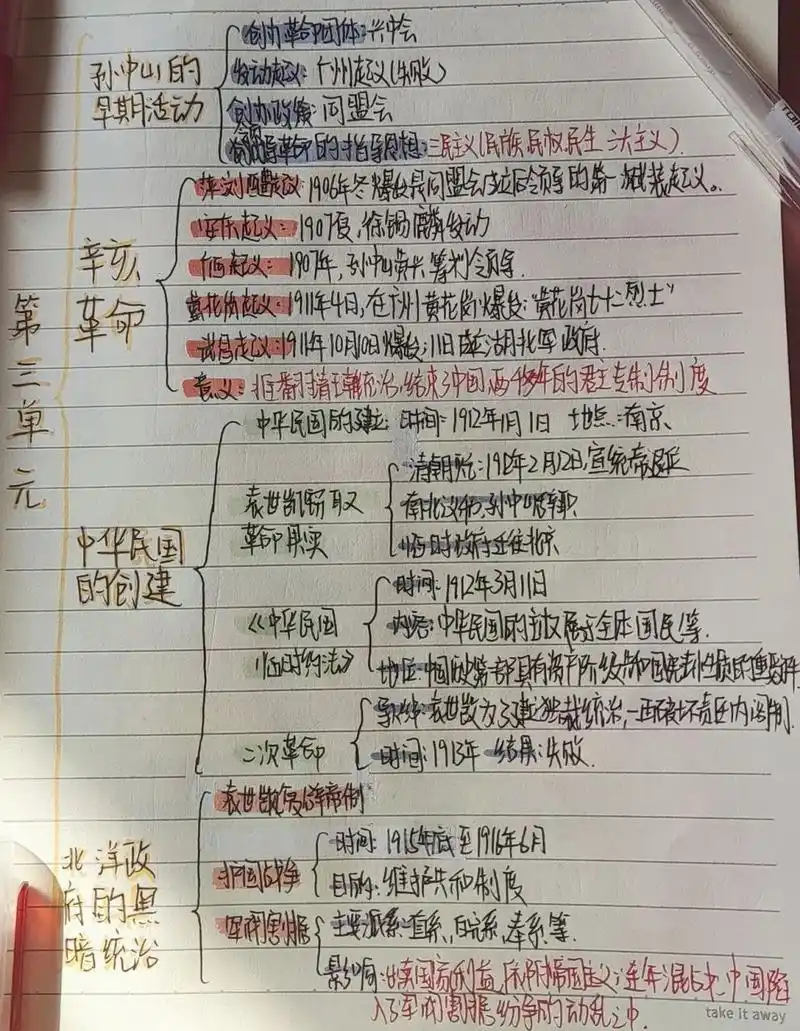 第三单元
孙中山的
早期活动
创办革命团体:兴中会
发动起义:广州起义(失败)
创办政党:同盟会
革命的指导思想:三民主义(民族 民权 民生 三大主义).
辛亥
革命
萍浏醴起义:1906年冬爆发是同盟会成立后领导的第一次武装起义。
安庆起义:1907夏,徐锡麟发动
广西起义:1907年,孙中山黄兴筹划领导.
黄花岗起义:1911年4日,在广州黄花岗爆发:"黄花岗七十二烈士"
武昌起义:1911年10月10日爆发;11日成立湖北军政府.
意义:推翻清王朝统治,结束了中国两千多年的君主专制制度
中华民国
的创建
中华民国的建立:时间:1912年1月1日 地点:南京
袁世凯窃取
革命果实
清朝灭亡:1912年2月12日,宣统帝退位
南北议和,孙中山辞职
临时政府迁往北京
《中华民国
临时约法》
时间:1912年3月11日
内容:中华民国的主权属于全体国民等.
地位:中国历史第一部具有资产阶级共和国宪法性质的重要文件
二次革命
导火线:袁世凯为了建立独裁统治,一再破坏责任内阁制.
时间:1913年 结果:失败.
北洋政
府的黑
暗统治
袁世凯复辟帝制
护国战争
时间:1915年底至1916年6月
目的:维护共和制度
军阀割据
主要派系:直系,皖系,奉系等.
影响:出卖国家利益,依附帝国主义;连年混战,中国陷
入了军阀割据纷争的动乱之中.
take it away